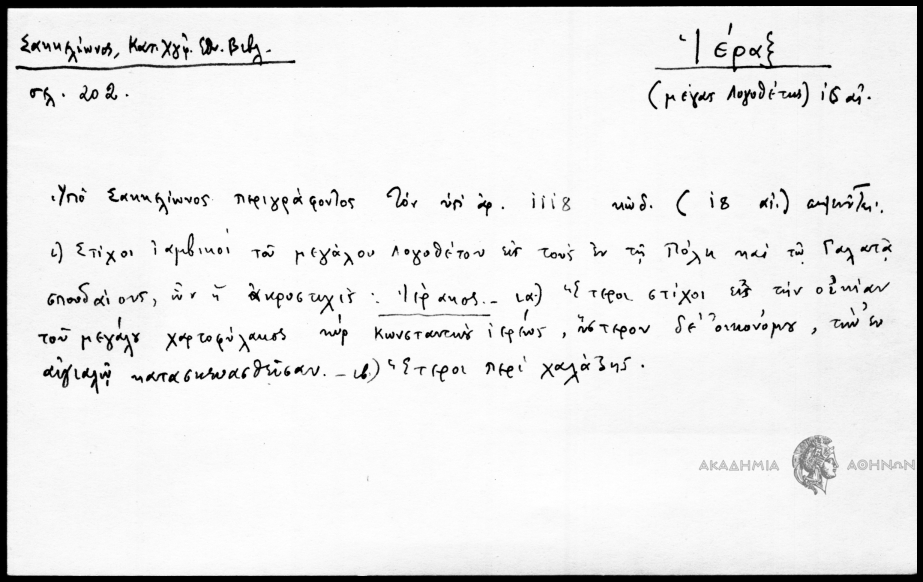 Σακκελίωνος, Κατ. Χγφ. Εθν. Βιβλ.
Ἱέραξ
σελ. 202.
(μέγας Λογοθέτης) ις αἰ.
Ὑπὸ Σακκελίωνος περιγράφοντος τὸν ὑπ' ἀρ. 1118 κώδ. (18 αἰ.)
ι) Στίχοι ἰαμβικοὶ τοῦ μεγάλου Λογοθέτου εἰς τοὺς ἐν τῇ Πόλει καὶ τῷ Γαλατᾷ
σπουδαίους, ὧν ἡ ἀκροστιχὶς: Ἱέρακος. – ια) Ἕτεροι στίχοι εἰς τὴν οἰκίαν
τοῦ μεγάλου χαρτοφύλακος κὺρ Κωνσταντίνου ἱερέως, ὕστερον δὲ οἰκονόμου, τὴν ἐν
αἰγιαλῷ κατασκευασθεῖσαν. – ιβ) Ἕτεροι περὶ χαλάζης.
ΑΚΑΔΗΜΙΑ ΑΘΗΝΩΝ